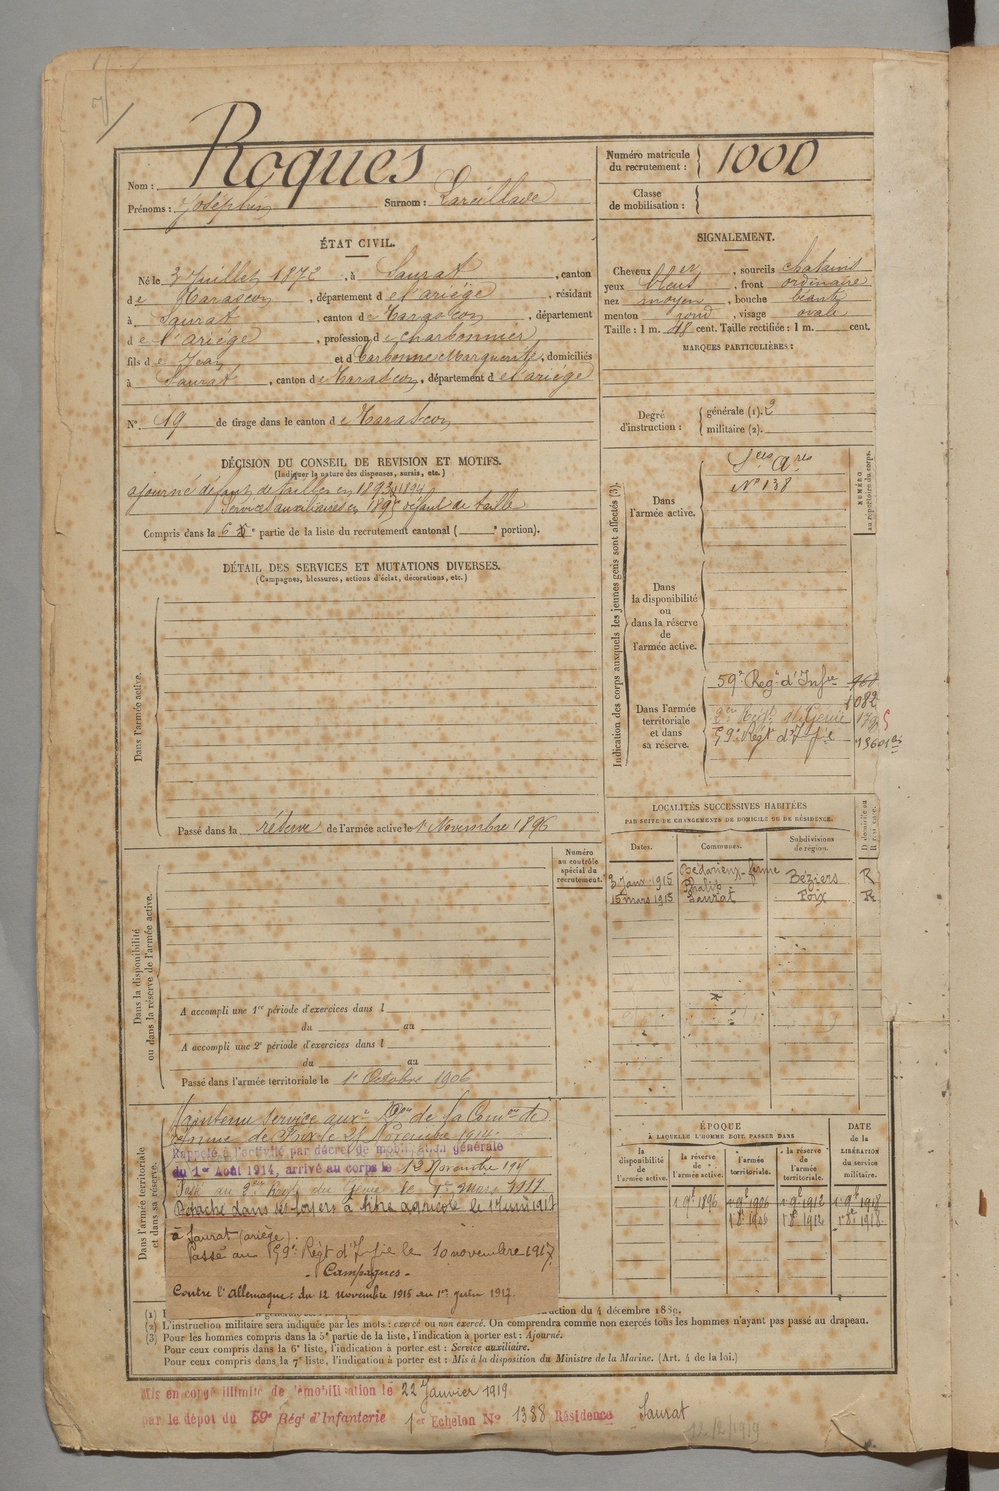 Nom : Roques
Numéro matricule du recrutement : 1000
Prénoms : Joseph
Surnom : Lareillade
Classe de mobilisation :
ÉTAT CIVIL.
Né le 3 Juillet 1872, à Saurat, canton
de Tarascon, département de l'ariège, résidant
à Saurat, canton de Tarascon, département
de l'ariège, profession de charbonnier
fils de Jean et de Carbonne Marguerite, domiciliés
à Saurat, canton de Tarascon, département de l'ariège
N° 19 de tirage dans le canton de Tarascon
SIGNALEMENT.
Cheveux , sourcils chatains
yeux bleus, front ordinaire
nez moyen, bouche béante
menton rond, visage ovale
Taille : 1 m. 48 cent. Taille rectifiée : 1 m. cent.
MARQUES PARTICULIÈRES :
Degré d'instruction : générale (1). 2
militaire (2).
DÉCISION DU CONSEIL DE REVISION ET MOTIFS.
(Indiquer la nature des dispenses, sursis, etc.)
ajourné défaut de taille en 1893, 1894
Services auxiliaires en 1895 défaut de taille
Compris dans la 6 e partie de la liste du recrutement cantonal ( e portion).
DÉTAIL DES SERVICES ET MUTATIONS DIVERSES.
(Campagnes, blessures, actions d'éclat, décorations, etc.)
Dans l'armée active.
Passé dans la réserve de l'armée active le 1 Novembre 1896
Indication des corps auxquels les jeunes gens sont affectés (3).
NUMÉRO au répertoire du corps.
Dans l'armée active.
Sces Ares
N° 138
Dans la disponibilité ou dans la réserve de l'armée active.
Dans l'armée territoriale et dans sa réserve.
59e Regt d'Infie
1082
2e Regt du Génie
59e Régt d'Ifie
LOCALITÉS SUCCESSIVES HABITÉES
PAR SUITE DE CHANGEMENTS DE DOMICILE OU DE RÉSIDENCE.
Dates. Communes. Subdivisions de région.
3 Janv 1915 Bédarieux - ferme Béziers R
16 mars 1915 Saurat Foix R
Numéro au contrôle spécial du recrutement.
Dans la disponibilité ou dans la réserve de l'armée active.
A accompli une 1re période d'exercices dans l
du au
A accompli une 2e période d'exercices dans l
du au
Passé dans l'armée territoriale le 1r Octobre 1906
Dans l'armée territoriale et dans sa réserve.
Maintenu service auxre Don de la Comon de
réforme de Foix le 21 Novembre 1914.
Rappelé à l'activité par décret de mobilisation générale
du 1er Août 1914, arrivé au corps le 12 Novembre 1915
Passé au 2me Regt du Génie le 1er mars 1917
Détaché dans ses foyers à titre agricole le 1r juin 1917
à Saurat (ariège).
Passé au 59e Régt d'Ifie le 10 novembre 1917
- Campagnes -
Contre l'Allemagne : du 12 novembre 1915 au 1er juin 1917.
ÉPOQUE
À LAQUELLE L'HOMME DOIT PASSER DANS
la disponibilité de l'armée active. la réserve de l'armée active. l'armée territoriale. la réserve de l'armée territoriale.
DATE de la LIBÉRATION du service militaire.
1 9e 1896 1 9e 1906 1 9e 1912 1 9e 1918
1 8e 1906 1 8e 1912 1 8e 1918
ction du 4 décembre 1889.
(2) L'instruction militaire sera indiquée par les mots : exercé ou non exercé. On comprendra comme non exercés tous les hommes n'ayant pas passé au drapeau.
(3) Pour les hommes compris dans la 5e partie de la liste, l'indication à porter est : Ajourné.
Pour ceux compris dans la 6e liste, l'indication à porter est : Service auxiliaire.
Pour ceux compris dans la 7e liste, l'indication à porter est : Mis à la disposition du Ministre de la Marine. (Art. 4 de la loi.)
Mis en congé illimité de démobilisation le 22 Janvier 1919
par le dépot du 59e Régt d'Infanterie 1er Echelon N° 1388 Résidence Saurat
12/2/1919